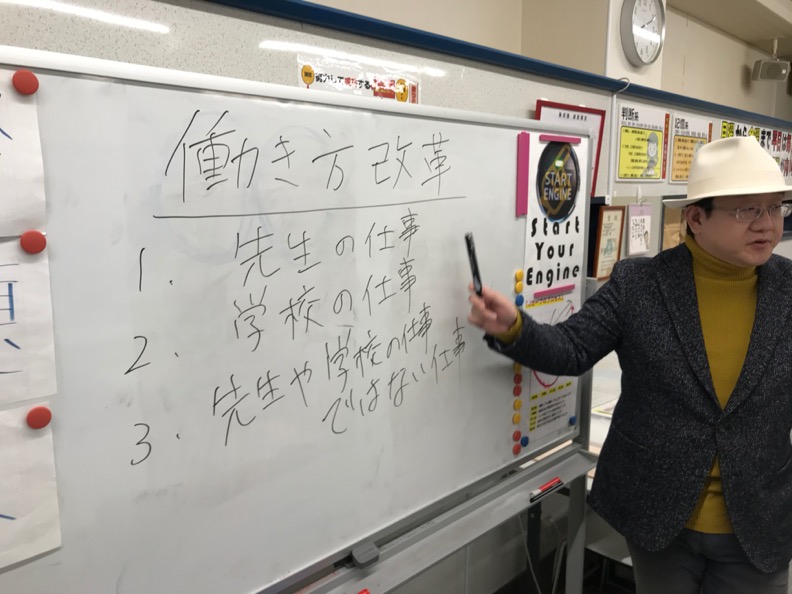 働き方改革
1. 先生の仕事
2. 学校の仕事
3. 先生や学校の仕事
ではない仕事
START
ENGINE
Start
Your
Engine
判断系
記憶系